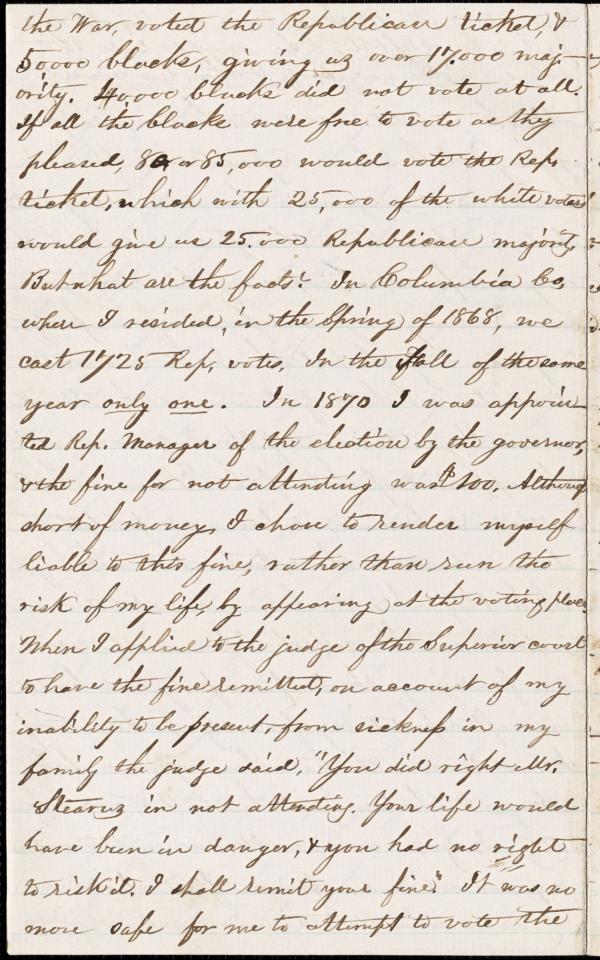 the War, voted the Republican ticket, &
50000 blacks, giving us over 17.000 maj-
ority. 40,000 blacks did not vote at all.
If all the blacks were free to vote as they
pleased, 80 or 85,000 would vote the Rep.
ticket, which with 25,000 of the white votes
would give us 25.000 Republican majority.
But what are the facts? In Columbia Co,
where I resided, in the Spring of 1868, we
cast 1725 Rep, votes. In the fall of the same
year only one. In 1870 I was appoin-
ted Rep. Manager of the election by the governor,
& the fine for not attending was $100. Although
short of money, I chose to render myself
liable to this fine, rather than run the
risk of my life, by appearing at the voting place.
When I applied to the judge of the Superior court
to have the fine remitted, on account of my
inability to be present, from sickness in my
family the judge said, "You did right Mr.
Stearns in not attending. Your life would
have been in danger, & you had no right
to risk it. I shall remit your fine." It was no
more safe for me to attempt to vote the